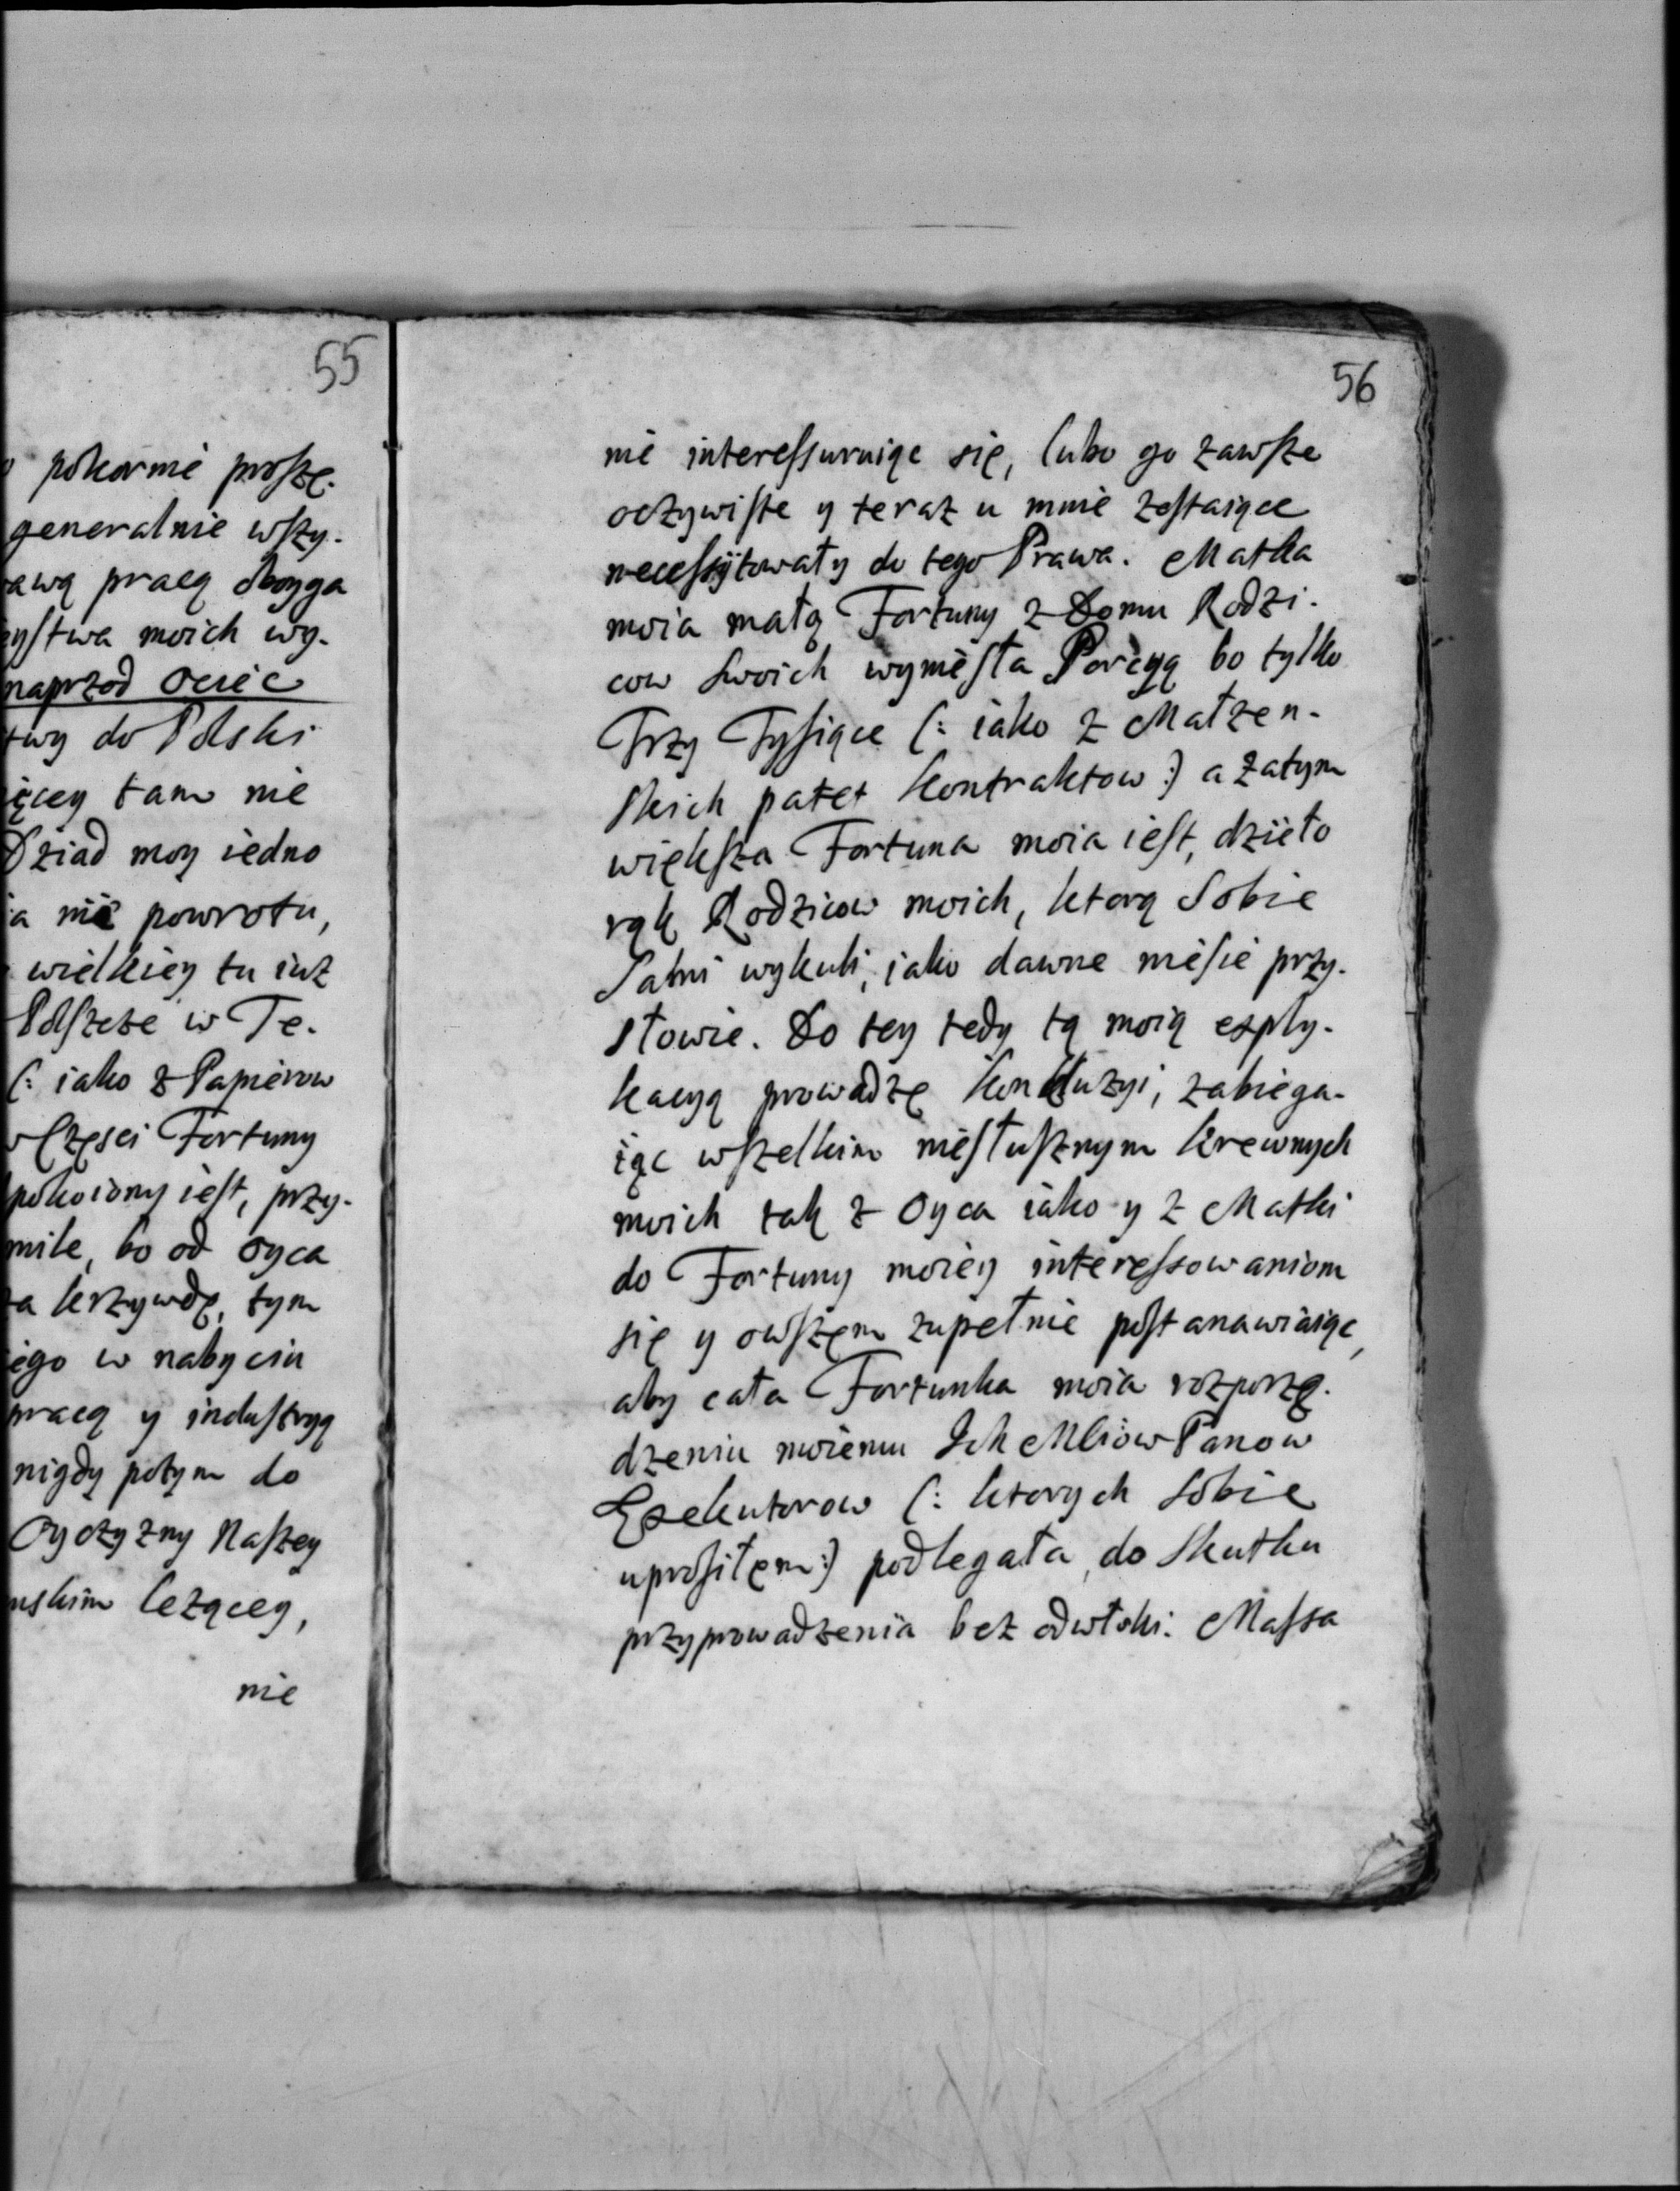 55
pokornie proszę.
generalnie wszy-
awą pracą oboyga
ystwa moich wy-
naprzod Ociec
twy do Polski
ięcey tam nie
Dziad moy iedno
ia nie powrotu,
wielkiey tu iuz
Polszcze w Te-
(: iako z Papierow
Częsci Fortuny
pokoiony iest, przy-
mile, bo od Oyca
a krzywdę, tym
iego w nabyciu
pracą y industryą
nigdy potym do
Oyczyzny Naszey
uskim lezącey,
nie
56
nie interessuruiąc się, lubo go zawsze
oczywiste y teraz u mnie zostaiące
necessytowały do tego Prawa. Matka
moia małą Fortuny z Domu Rodzi-
cow swoich wyniesła Porcyą bo tylko
Trzy Tysiące (: iako z Małzen-
skich patet Kontraktow :) a zatym
większa Fortuna moia iest, dzieło
rąk Rodzicow moich, ktorą Sobie
Sami wykuli, iako dawne niesie przy-
słowie. Do tey tedy tą moią exply-
kacyą prowadzę Konkluzyi, zabiega-
iąc wszelkim niesłusznym Krewnych
moich tak z Oyca iako y z Matki
do Fortuny moiey interessowaniom
się y owszem zupełnie postanawiaiąc,
aby cała Fortunka moia rozporzą-
dzeniu moiemu Ich Mliow Panow
Exekutorow (: ktorych Sobie
uprosiłem :) podlegała, do Skutku
przyprowadzenia bez odwłoki. Massa